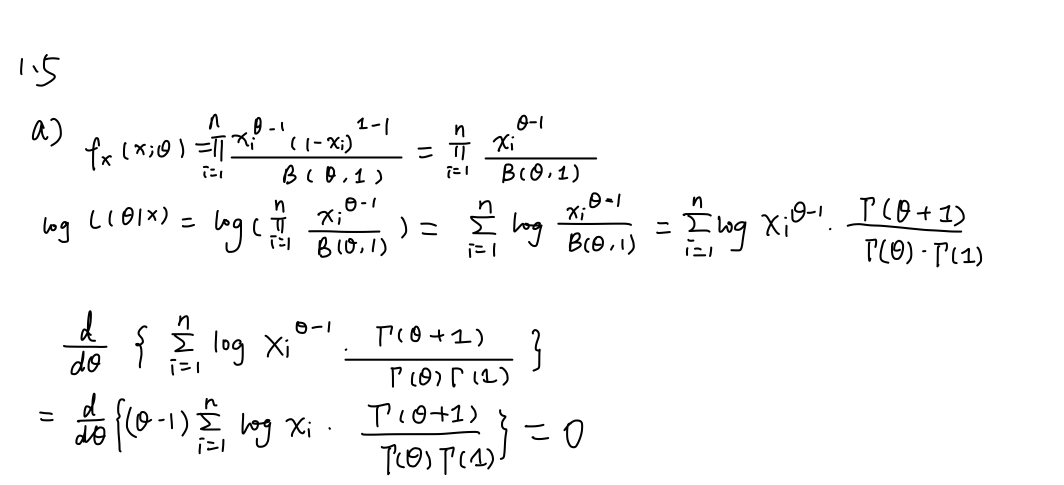 1.5
a) f_x(x;θ) = ∏_{i=1}^{n} \frac{x_i^{θ-1}(1-x_i)^{1-1}}{B(θ,1)} = ∏_{i=1}^{n} \frac{x_i^{θ-1}}{B(θ,1)}
log L(θ|x) = log(∏_{i=1}^{n} \frac{x_i^{θ-1}}{B(θ,1)}) = ∑_{i=1}^{n} log \frac{x_i^{θ-1}}{B(θ,1)} = ∑_{i=1}^{n} log x_i^{θ-1} · \frac{Γ(θ+1)}{Γ(θ)·Γ(1)}
\frac{d}{dθ} { ∑_{i=1}^{n} log x_i^{θ-1} · \frac{Γ(θ+1)}{Γ(θ)Γ(1)} }
= \frac{d}{dθ} {(θ-1) ∑_{i=1}^{n} log x_i · \frac{Γ(θ+1)}{Γ(θ)Γ(1)}} = 0